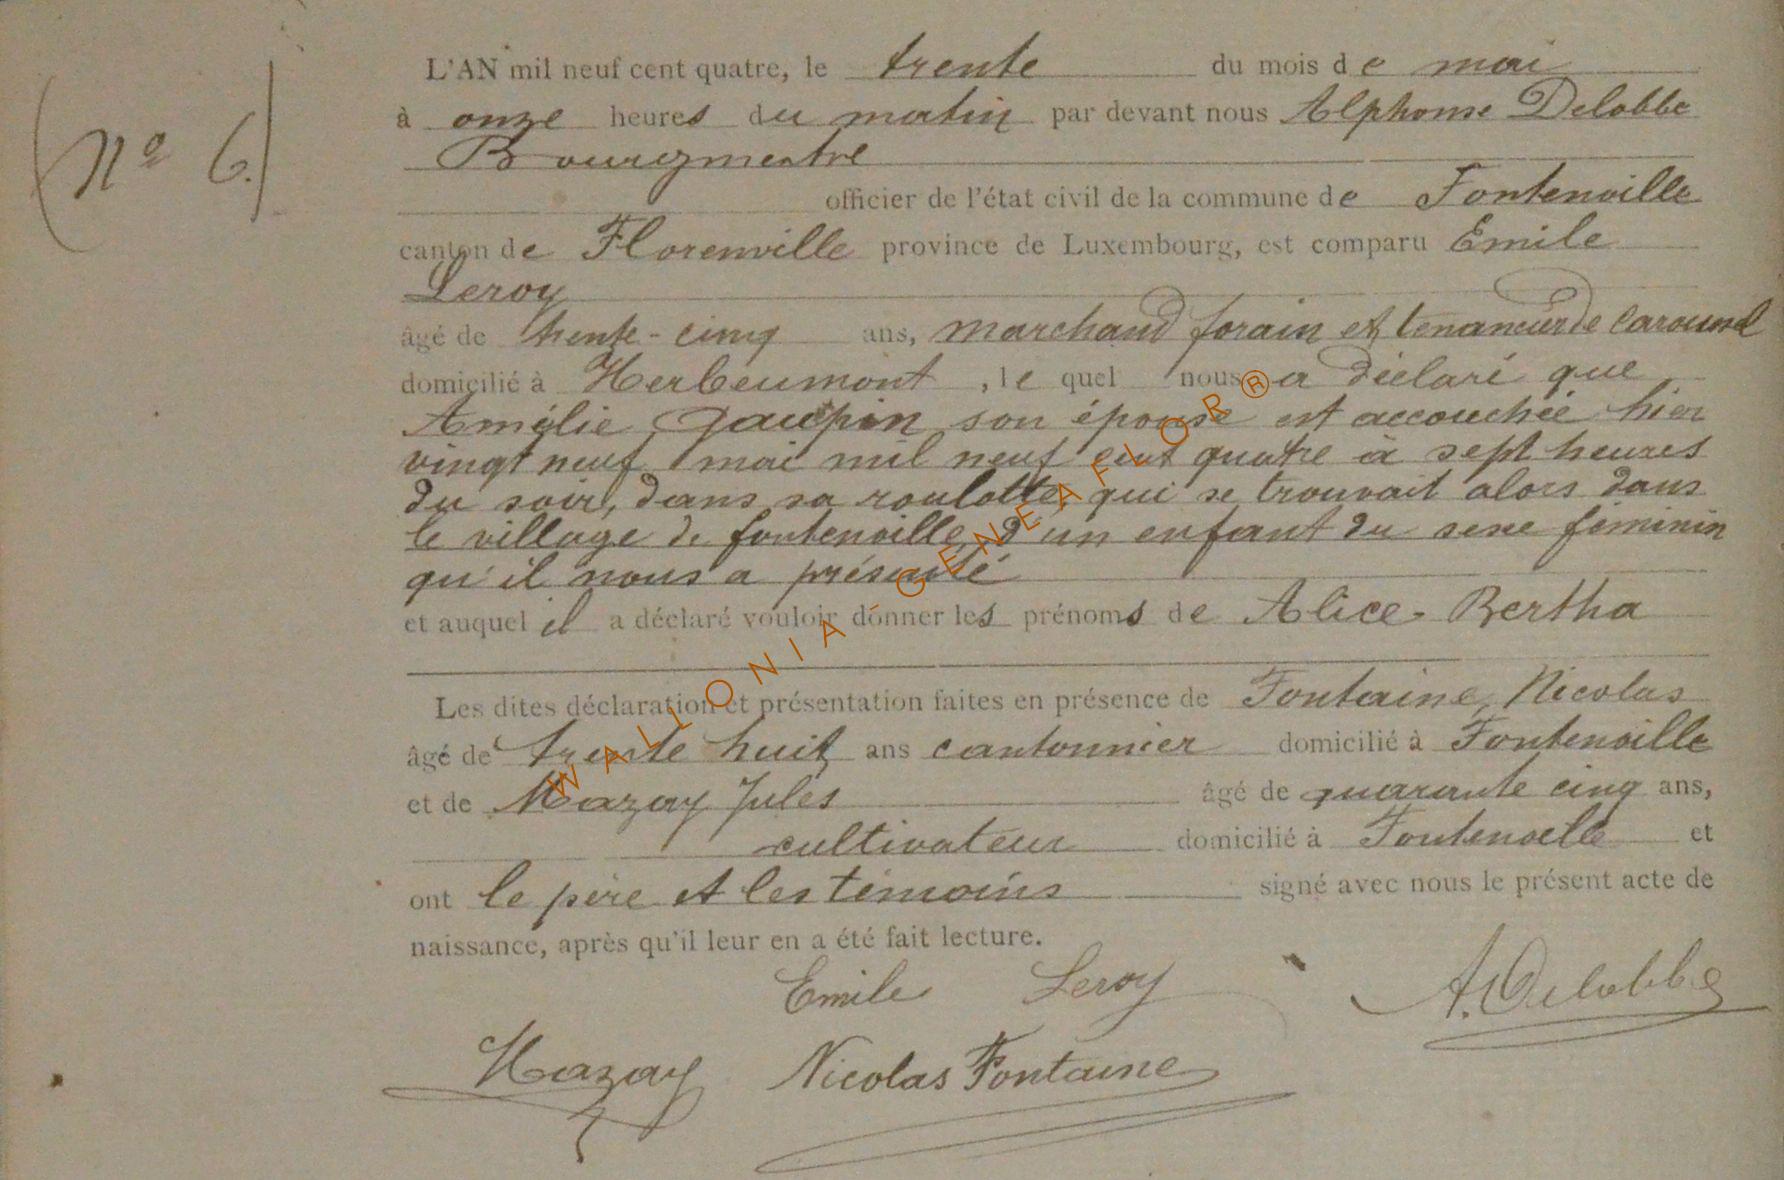 (N° 6.)
L'AN mil neuf cent quatre, le trente du mois de mai
à onze heures du matin par devant nous Alphonse Delobbe
Bourgmestre
officier de l'état civil de la commune de Fontenoille
canton de Florenville province de Luxembourg, est comparu Emile
Leroy
âgé de trente-cinq ans, marchand forain et tenancier de carousel
domicilié à Herbeumont, lequel nous a déclaré que
Amélie son épouse est accouchée hier
vingt neuf mai mil neuf cent quatre à sept heures
du soir, dans sa roulotte, qui se trouvait alors dans
le village de fontenoille, d'un enfant du sexe féminin
qu'il nous a présenté
et auquel il a déclaré vouloir donner les prénoms de Alice-Bertha
Les dites déclaration et présentation faites en présence de Fontaine, Nicolas
âgé de trente huit ans cantonnier domicilié à Fontenoille
et de Mazay Jules âgé de quarante cinq ans,
cultivateur domicilié à Fontenoille et
ont le père et les témoins signé avec nous le présent acte de
naissance, après qu'il leur en a été fait lecture.
Emile Leroy A. Delobbe
Mazay Nicolas Fontaine
WALLONIA-GENEAFLOR®